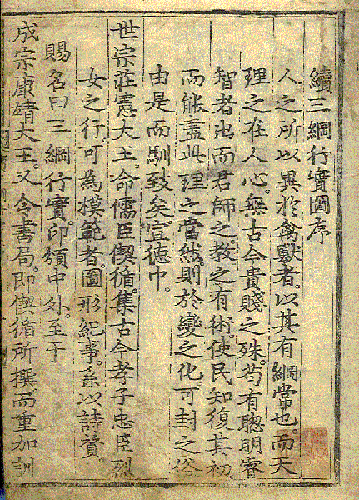 續三綱行實圖序
人之所以異於禽獸者以其有綱常也而天
理之在人心無古今貴賤之殊苟有聰明睿
智者出而君師之教之有術使民知復其初
而能盡此理之當然則於變之化可封之俗
由是而馴致矣宣德中
世宗莊憲大王命儒臣偰循集古今孝子忠臣烈
女之行可為模範者圖形紀事系以詩贊
賜名曰三綱行實印頒中外至于
成宗康靖大王又令書局即偰循所撰而重加訓